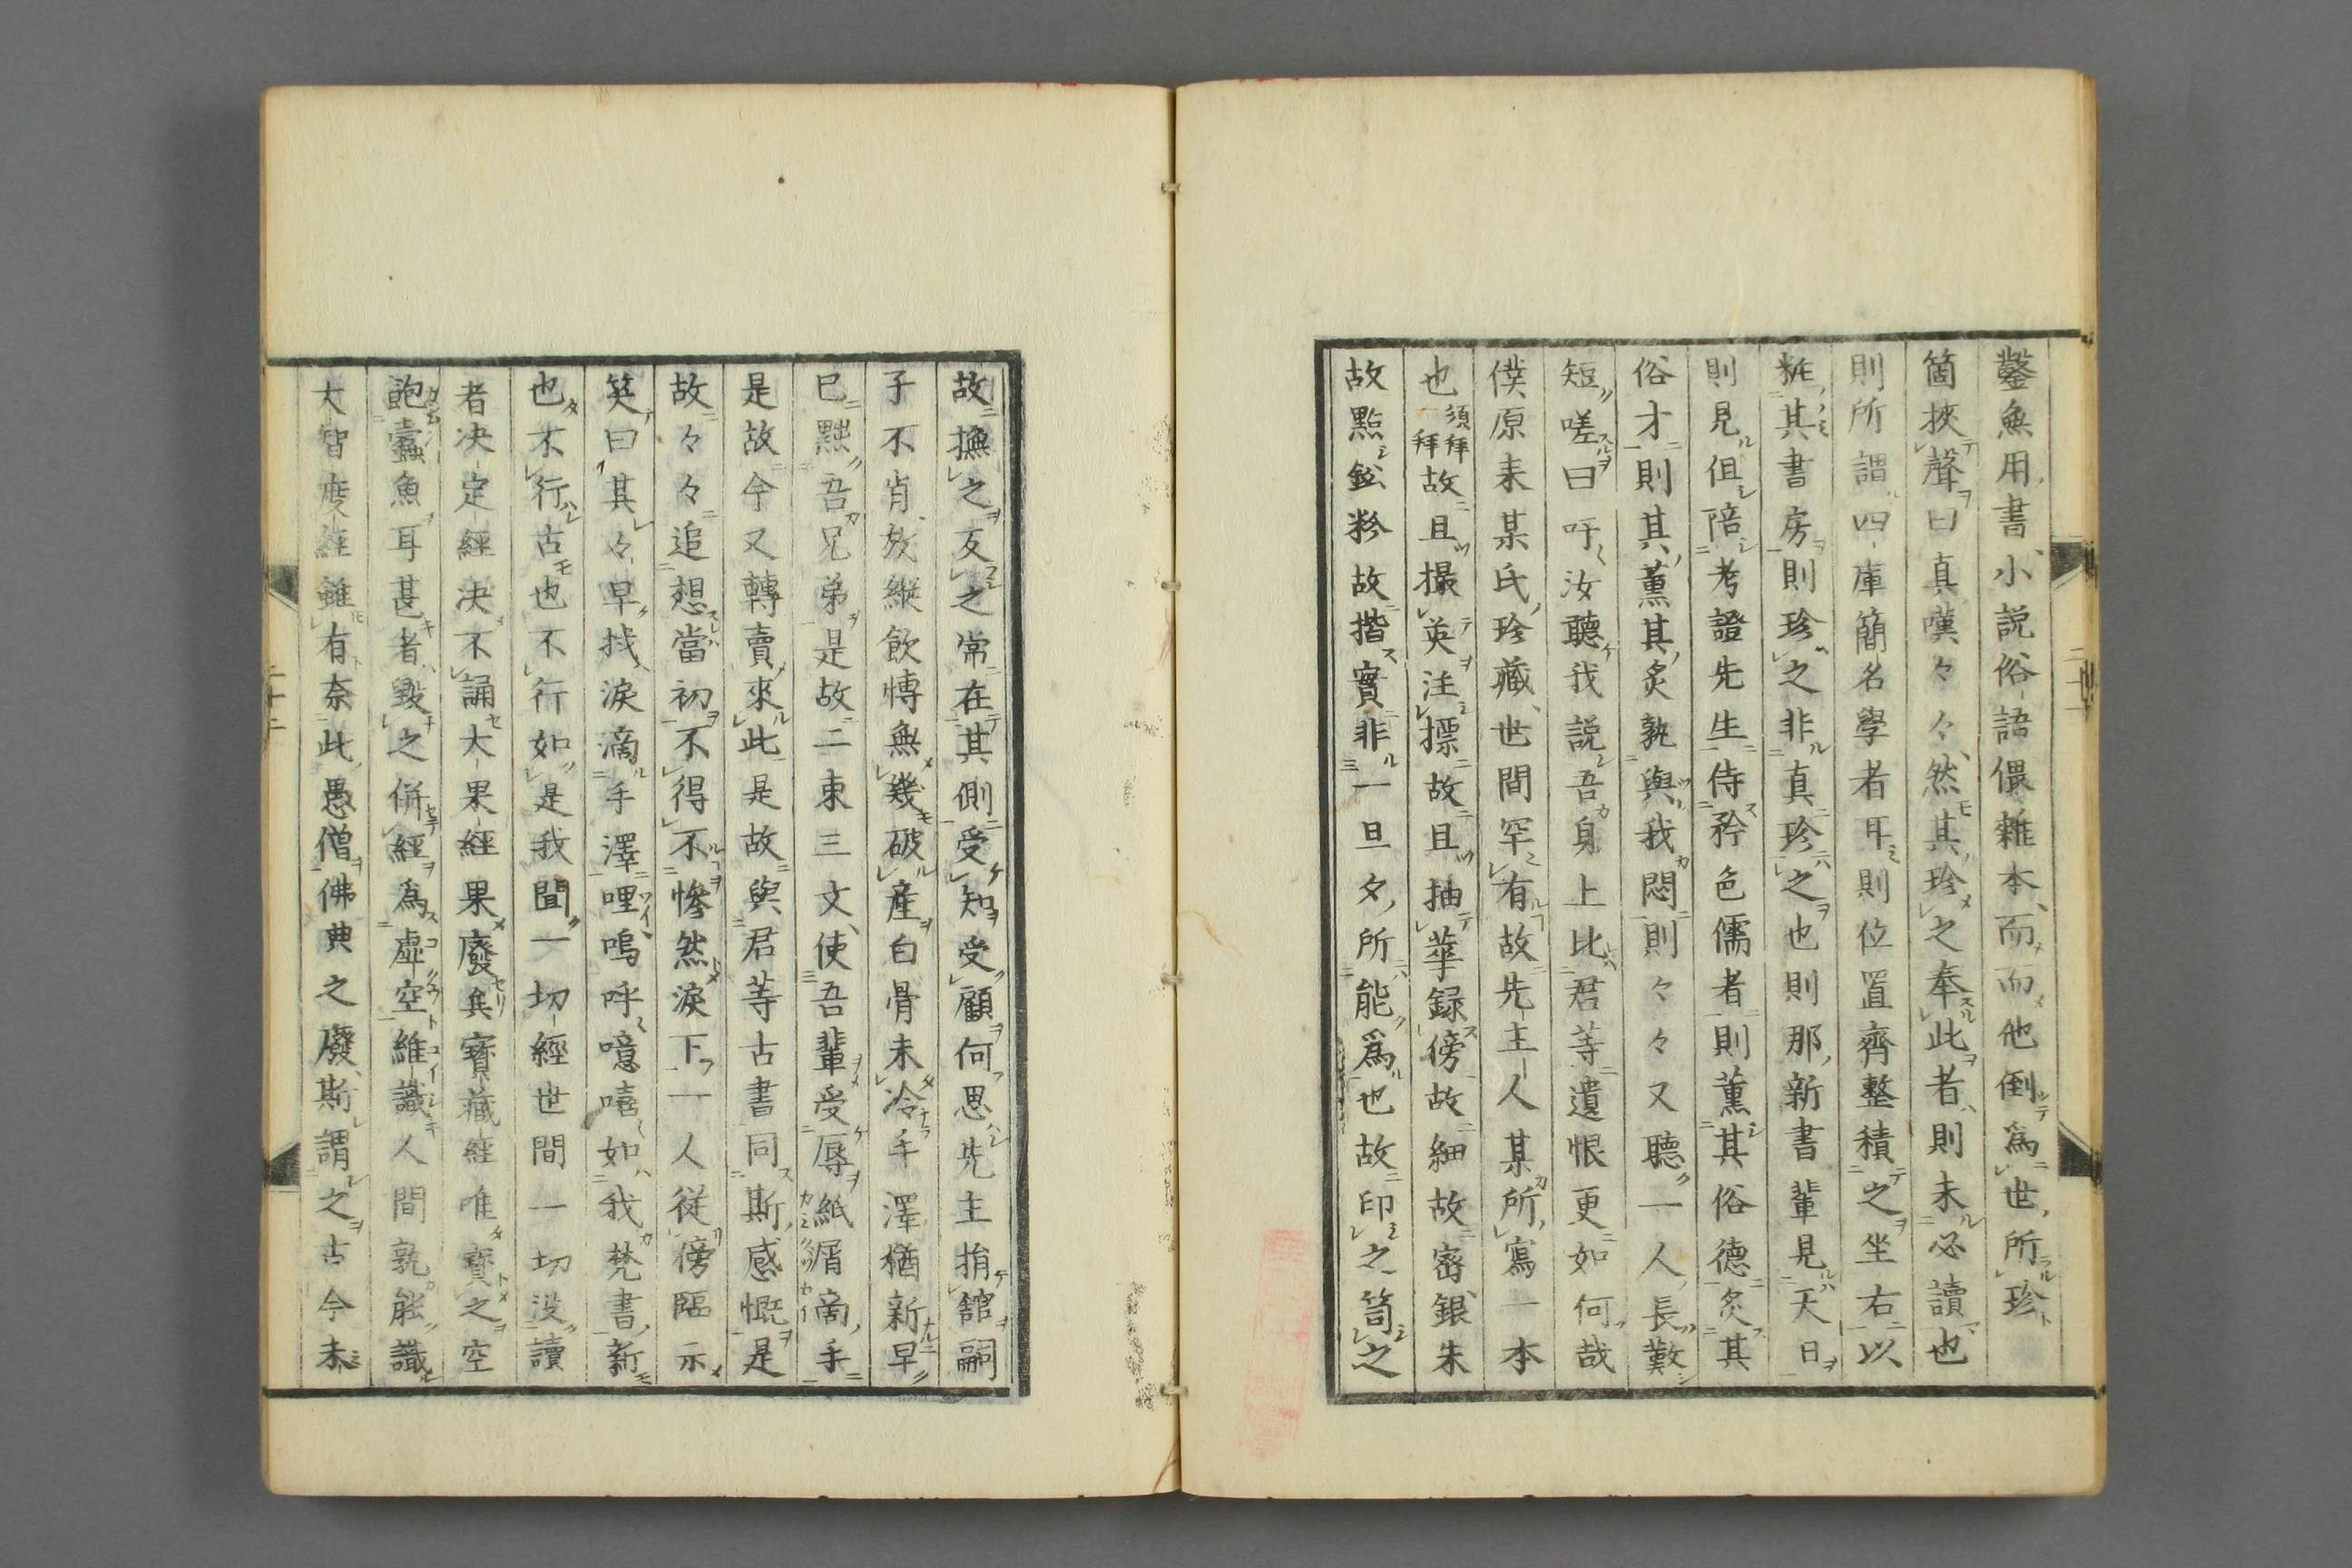 鑿無用書、小説俗語偎雜本、而而他倒為世所珍
箇挾聲曰真嘆々々、然其珍之奉此者、則未必讀也
則所謂四庫簡名學者耳則位置齊整積之坐右以
粧其書房則珍之非真珍之也則那新書輩見天日
則見伹陪考證先生侍矜色儒者則薫其俗德炙其
俗才則其薫其炙孰與我悶則々々又聽一人長歎
短嗟曰吁汝聽我説吾身上比君等遺恨更如何哉
僕原来某氏珍藏、世間罕有故先主人某所寫一本
也須拜拜故且撮英注標故且抽華録傍故細故密銀朱
故點鉛粉故揩實非一旦夕所能為也故印之笥之
故撫之友之常在其側受知受顧何思先主捐館嗣
子不肖放縱飲慱無幾破産白骨未冷手澤猶新早
已黜吾兄弟是故二束三文使吾輩受辱紙屑商手
是故今又轉賣來此是故與君等古書同斯感慨是
故々々追想當初不得不慘然淚下一人從傍臨示
笑曰其々早找淚滴手澤哩嗚呼噫嘻如我梵書新
也不行古也不行如是我聞一切經世間一切没讀
者决定經决不誦大果經果廢矣寶藏經唯寶之空
飽蠧魚耳甚者毀之併經為虛空維識人間孰能識
大智度經雖有奈此愚僧佛典之廢斯謂之古今未
二十二